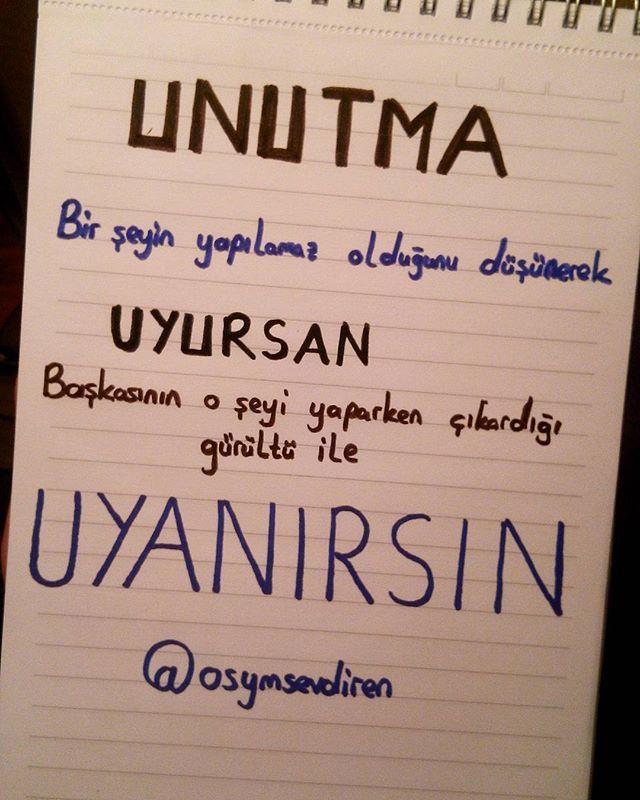 UNUTMA
Bir şeyin yapılamaz olduğunu düşünerek
UYURSAN
Başkasının o şeyi yaparken çıkardığı
gürültü ile
UYANIRSIN
@osymsevdiren